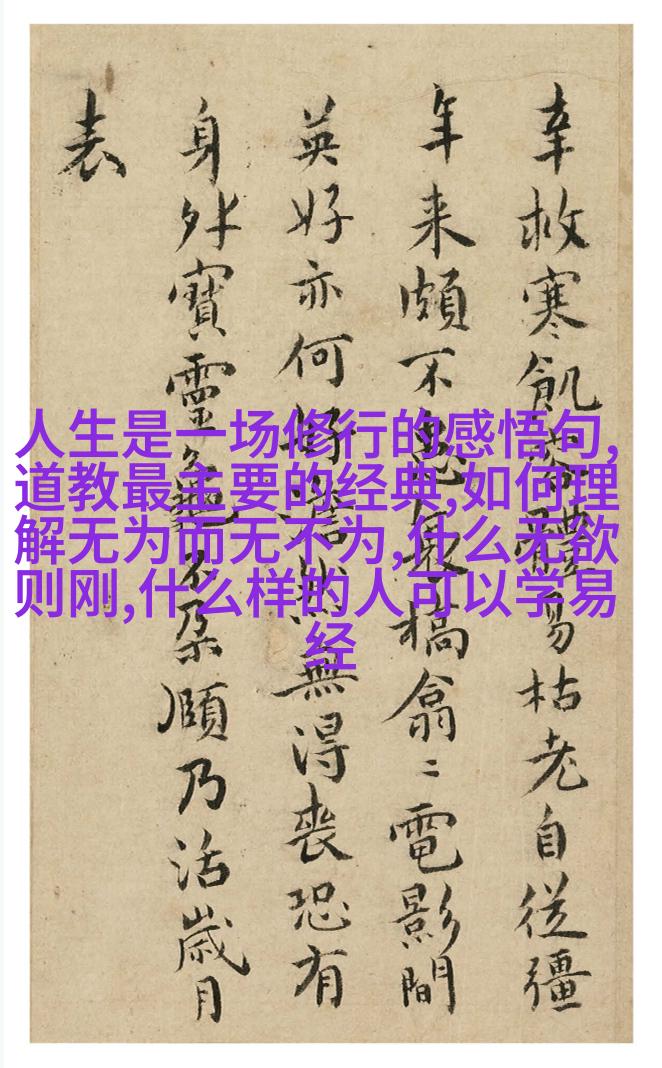 人生是一场修行的感悟句,
道教最主要的经典,如何理
解无为而无不为,什么无欲
则刚,什么样的人可以学易
经
幸救寒飢體易枯老自從彊
年来頗不槁翕〻電影間
英好亦何無得喪恐有
身外寶靈龜不朶頤乃活歲月
表